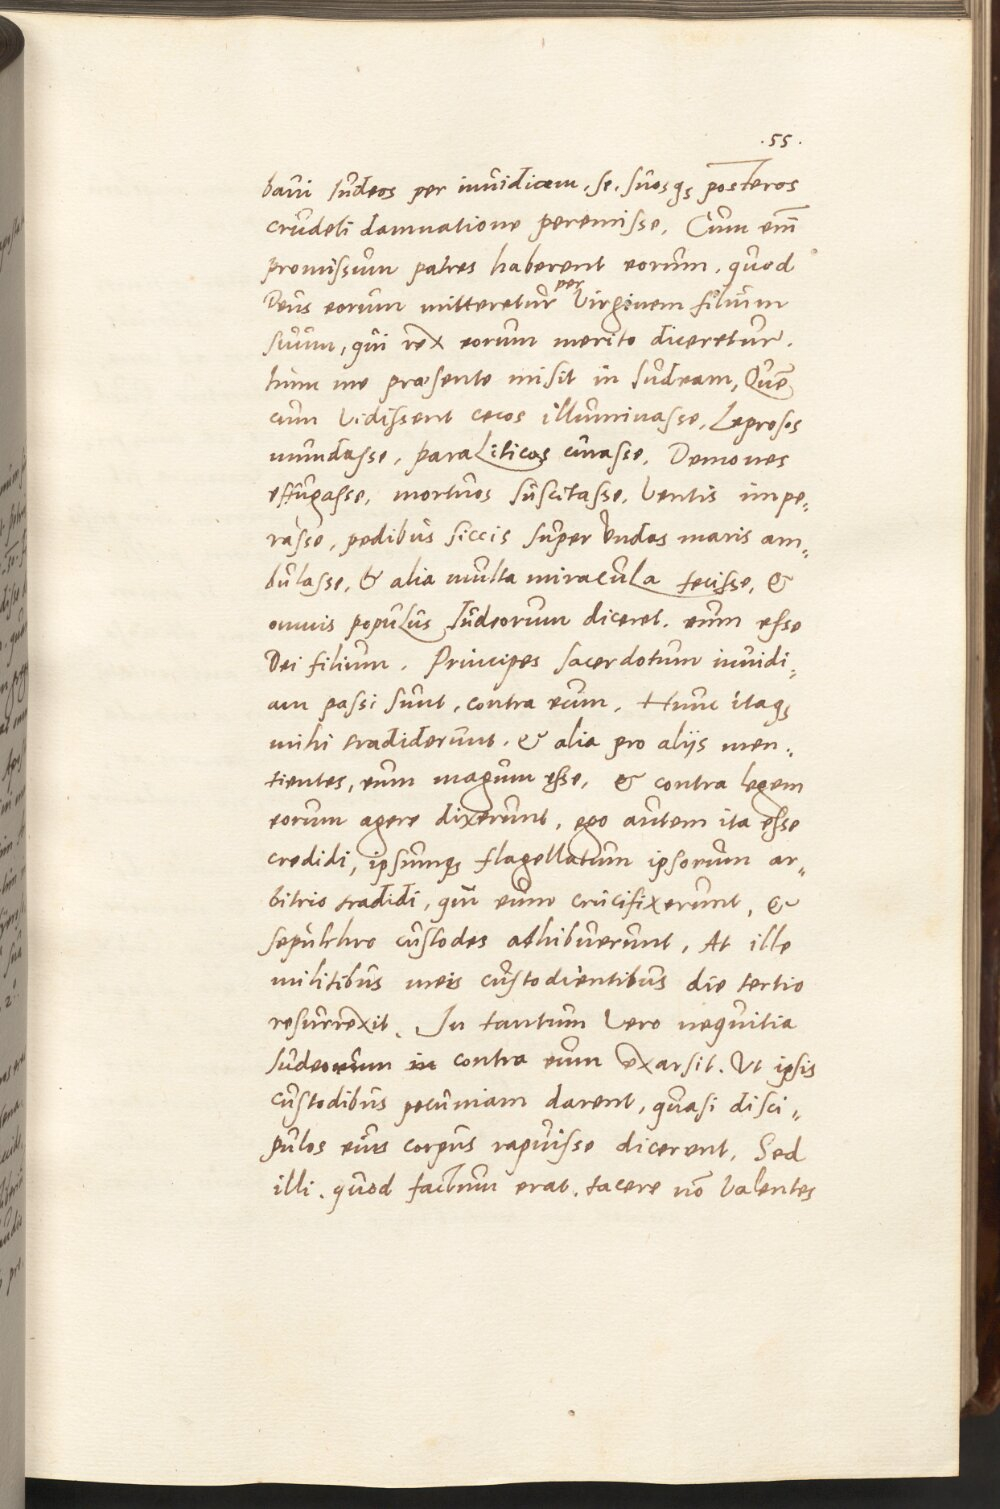 .55.
baui Iudeos per inuidiam, se, suosq; posteros
crudeli damnatione peremisse. Cum enĩ
promissum patres haberent eorum, quod
Deus eorum mitteretur per Virginem filium
suum, qui rex eorum merito diceretur.
hunc me præsente misit in Iudeam, Quẽ
cum vidissent cecos illuminasse, Leprosos
mundasse, paraliticos curasse, Demones
effugasse, mortuos suscitasse, Ventis impe„
rasse, pedibus siccis super undas maris am„
bulasse, & alia multa miracula fecisse, &
omnis populus Iudeorum diceret, eum esse
Dei filium. Principes sacerdotum inuidi„
am passi sunt, contra eum. Hunc itaq;
mihi tradiderunt. & alia pro alijs men„
tientes, eum magum esse, & contra legem
eorum agere dixerunt, ego autem ita esse
credidi, ipsumq; flagellatum ipsorum ar„
bitrio tradidi, qui eum crucifixerunt, &
sepulchro custodes adhibuerunt, At ille
militibus meis custodientibus die tertio
resurrexit. In tantum vero nequitia
Iudeorum in contra eum exarsit. Ut ipsis
custodibus pecuniam darent, quasi disci„
pulos eius corpus rapuisse dicerent, Sed
illi, quod factum erat, tacere nõ valentes